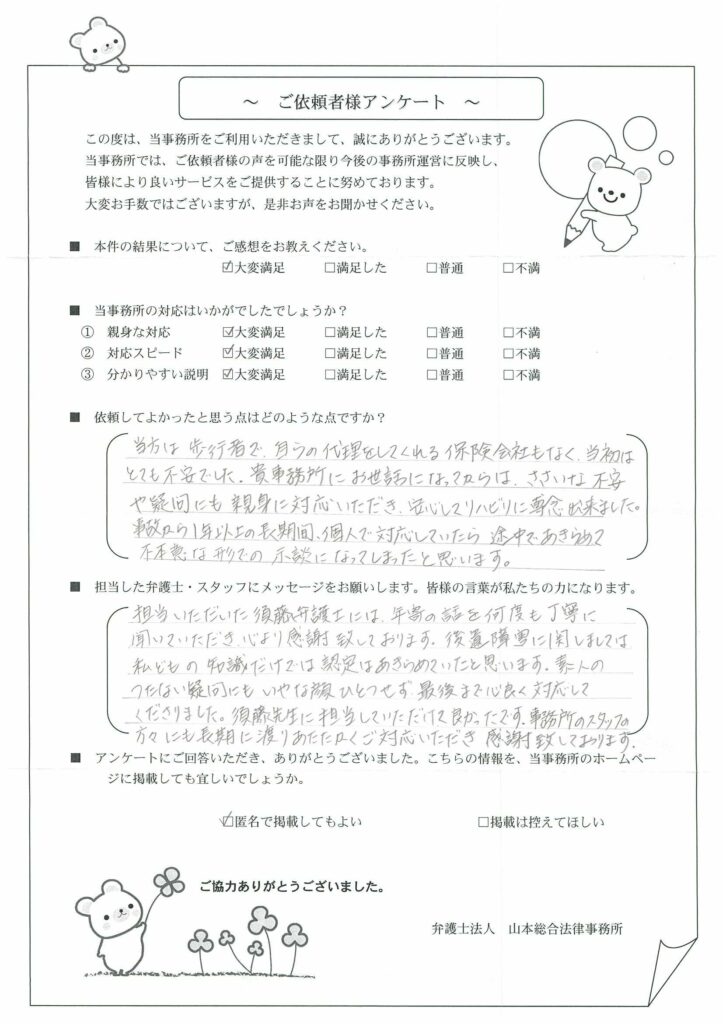 ～　ご依頼者様アンケート　～
この度は、当事務所をご利用いただきまして、誠にありがとうございます。
当事務所では、ご依頼者様の声を可能な限り今後の事務所運営に反映し、
皆様により良いサービスをご提供することに努めております。
大変お手数ではございますが、是非お声をお聞かせください。
■　本件の結果について、ご感想をお教えください。
☑大変満足　□満足した　□普通　□不満
■　当事務所の対応はいかがでしたでしょうか？
①　親身な対応　☑大変満足　□満足した　□普通　□不満
②　対応スピード　☑大変満足　□満足した　□普通　□不満
③　分かりやすい説明　☑大変満足　□満足した　□普通　□不満
■　依頼してよかったと思う点はどのような点ですか？
当方は歩行者で、自らの代理をしてくれる保険会社もなく、当初は
とても不安でした。貴事務所にお世話になってからは、ささいな不安
や疑問にも親身に対応いただき、安心してリハビリに専念出来ました。
事故から1年以上の長期間、個人で対応していたら途中であきらめて
不本意な形での示談になってしまったと思います。
■　担当した弁護士・スタッフにメッセージをお願いします。皆様の言葉が私たちの力になります。
担当いただいた須藤弁護士には、年寄の話を何度も丁寧に
聞いていただき、心より感謝致しております。後遺障害に関しましては
私どもの知識だけでは認定はあきらめていたと思います。素人の
つたない疑問にもいやな顔ひとつせず最後まで心良く対応して
くださりました。須藤先生に担当していただけて良かったです。事務所のスタッフの
方々にも長期に渡りあたたかくご対応いただき感謝致しております。
■　アンケートにご回答いただき、ありがとうございました。こちらの情報を、当事務所のホームペー
ジに掲載しても宜しいでしょうか。
☑匿名で掲載してもよい　□掲載は控えてほしい
ご協力ありがとうございました。
弁護士法人　山本総合法律事務所